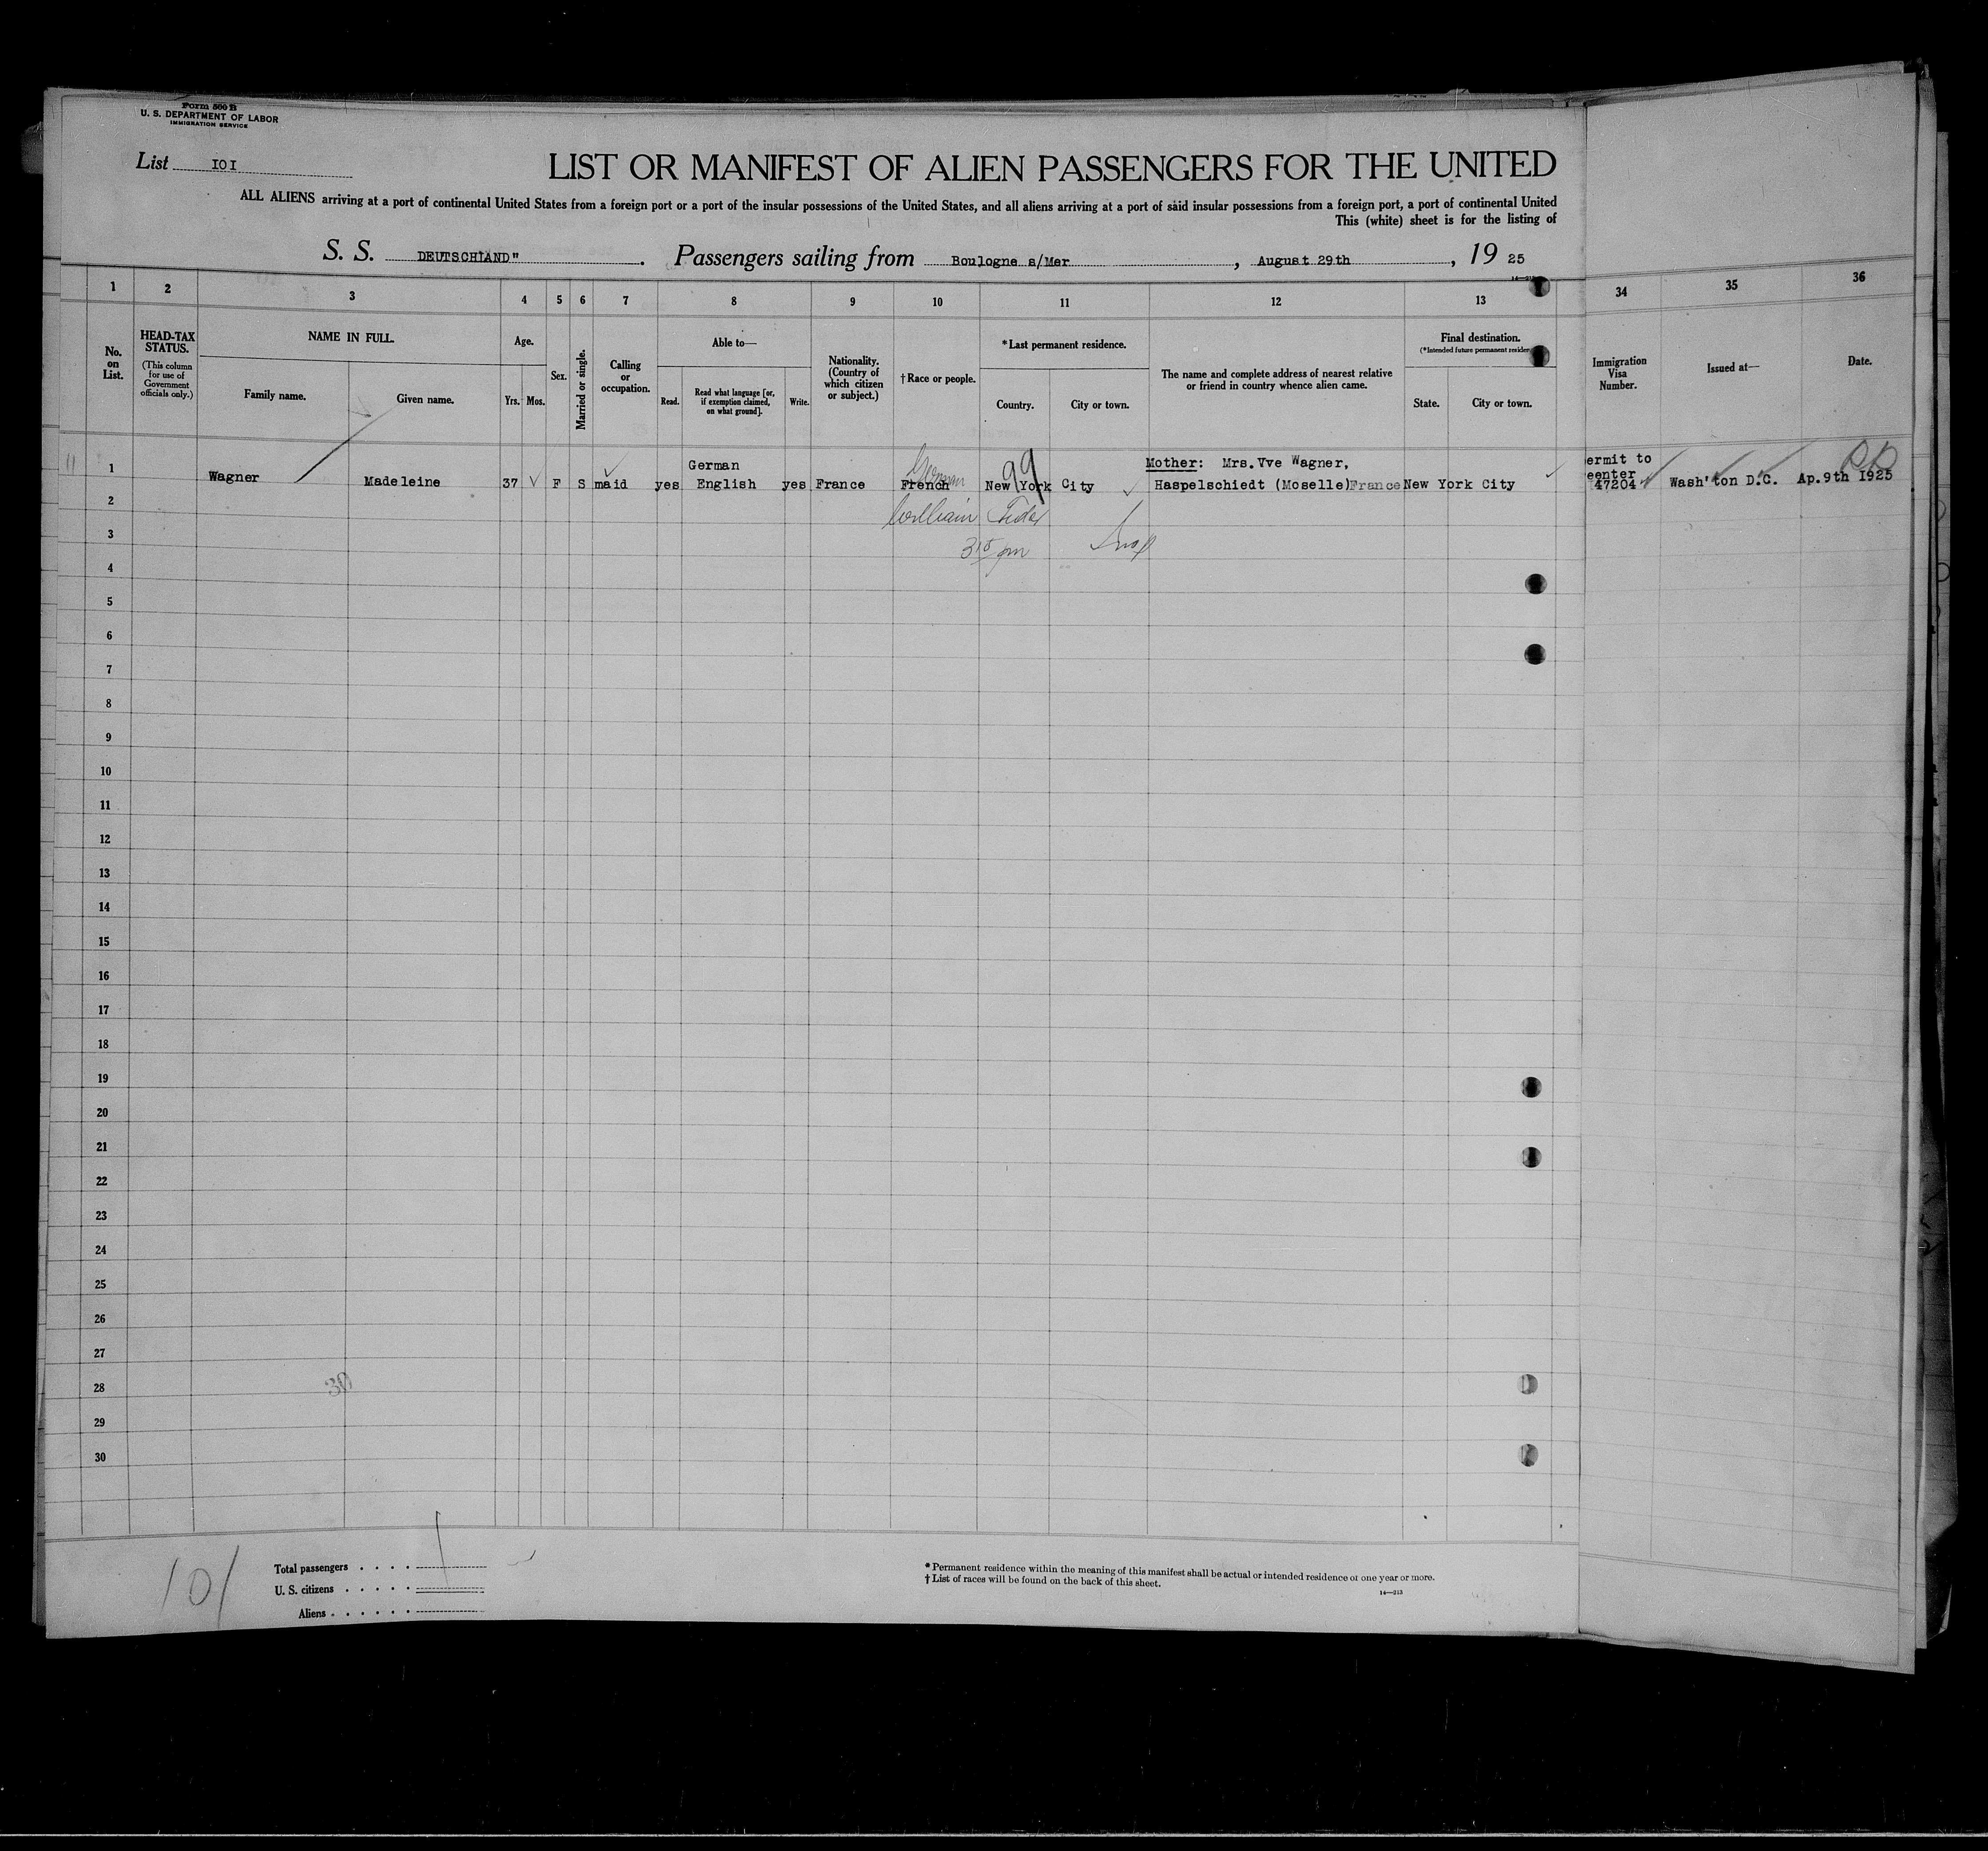 Form 500 B
U. S. DEPARTMENT OF LABOR
IMMIGRATION SERVICE
List IOI
LIST OR MANIFEST OF ALIEN PASSENGERS FOR THE UNITED
ALL ALIENS arriving at a port of continental United States from a foreign port or a port of the insular possessions of the United States, and all aliens arriving at a port of said insular possessions from a foreign port, a port of continental United
This (white) sheet is for the listing of
S. S. DEUTSCHLAND" . Passengers sailing from Boulogne s/Mer , August 29th , 19 25
1 2 3 4 5 6 7 8 9 10 11 12 13 34 35 36
No. on List.
HEAD-TAX STATUS.
(This column for use of Government officials only.)
NAME IN FULL.
Family name.
Given name.
Age.
Yrs. Mos.
Sex.
Married or single.
Calling or occupation.
Able to—
Read.
Read what language [or, if exemption claimed, on what ground].
Write.
Nationality. (Country of which citizen or subject.)
† Race or people.
* Last permanent residence.
Country.
City or town.
The name and complete address of nearest relative or friend in country whence alien came.
Final destination.
(* Intended future permanent residen
State.
City or town.
Immigration Visa Number.
Issued at—
Date.
11
German
German 99 Mother: Mrs.Vve Wagner, ermit to RP
1 Wagner Madeleine 37 F S maid yes English yes France French New York City Haspelschiedt (Moselle)France New York City eenter 47204 Wash'ton D.C. Ap.9th 1925
2 William
3 3 15 pm
4
5
6
7
8
9
10
11
12
13
14
15
16
17
18
19
20
21
22
23
24
25
26
27
28
29
30
101
Total passengers . . . . 1
U. S. citizens . . . . .
Aliens . . . . . .
* Permanent residence within the meaning of this manifest shall be actual or intended residence of one year or more.
† List of races will be found on the back of this sheet.
14—213